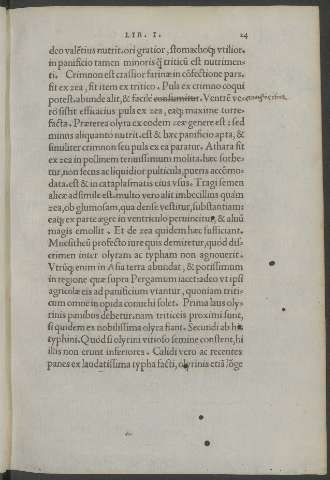 LIB. I. 24
deo valẽtius nutrit. ori gratior, stomachoq; vtilior.
in panificio tamen minoris q̃ triticũ est nutrimen-
ti. Crimnon est crassior farinæ in cõfectione pars.
fit ex zea, fit item ex tritico. Puls ex crimno coqui
potest. abunde alit, & facilè consumitur. Ventrẽ ve-
rò sistit efficacius puls ex zea, eaq; maximè torre-
facta. Præterea olyra ex eodem zeæ genere est: sed
minus aliquanto nutrit. est & hæc panificio apta, &
similiter crimnon seu puls ex ea paratur. Athara fit
ex zea in pollinem tenuissimum molita. hæc sorbe-
tur, non secus ac liquidior pulticula, pueris accõmo-
data. est & in cataplasmatis eius vsus. Tragi semen
alicæ adsimile est. multo vero alit imbecillius quàm
zea, ob glumosam, qua densè vestitur, substantiam:
eaq; ex parte ægre in ventriculo peruincitur, & aluũ
magis emollit. Et de zea quidem hæc sufficiant.
Mnesitheũ profectò iure quis demiretur, quòd dis-
crimen inter olyram ac typham non agnouerit.
Vtrũq; enim in Asia terra abundat, & potissimum
in regione quæ supra Pergamum iacet: adeo vt ipsi
agricolæ eis ad panificium vtantur, quoniam triti-
cum omne in opida conuehi solet. Prima laus oly-
rinis panibus debetur. nam triticeis proximi sunt,
si quidem ex nobilissima olyra fiant. Secundi ab his
typhini. Quòd si olyrini vitioso semine constent, hi
illis non erunt inferiores. Calidi vero ac recentes
panes ex laudatissima typha facti, olyrinis etiã lõge